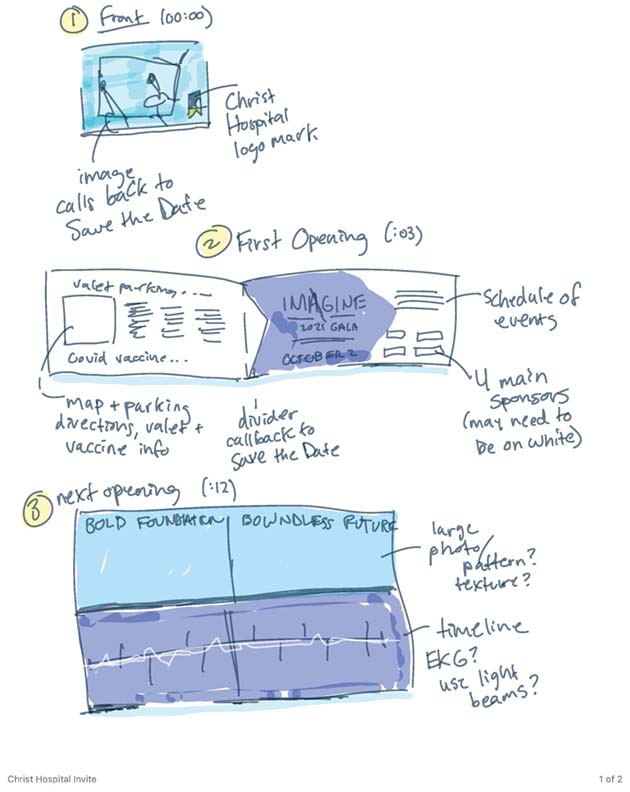 1 Front (00:00)
Christ
Hospital
logo mark
image
calls back to
Save the Date
2 First Opening (:03)
valet parking, ...
Covid vaccine...
IMAGINE
2021 GALA
OCTOBER 2
Schedule of
events
4 main
sponsors
(may need to
be on white)
map + parking
directions, valet +
vaccine info
divider
callback to
Save the Date
3 next opening (:12)
BOLD FOUNDATION BOUNDLESS FUTURE
large
photo/
pattern?
texture?
timeline
EKG?
use light
beams?
Christ Hospital Invite
1 of 2